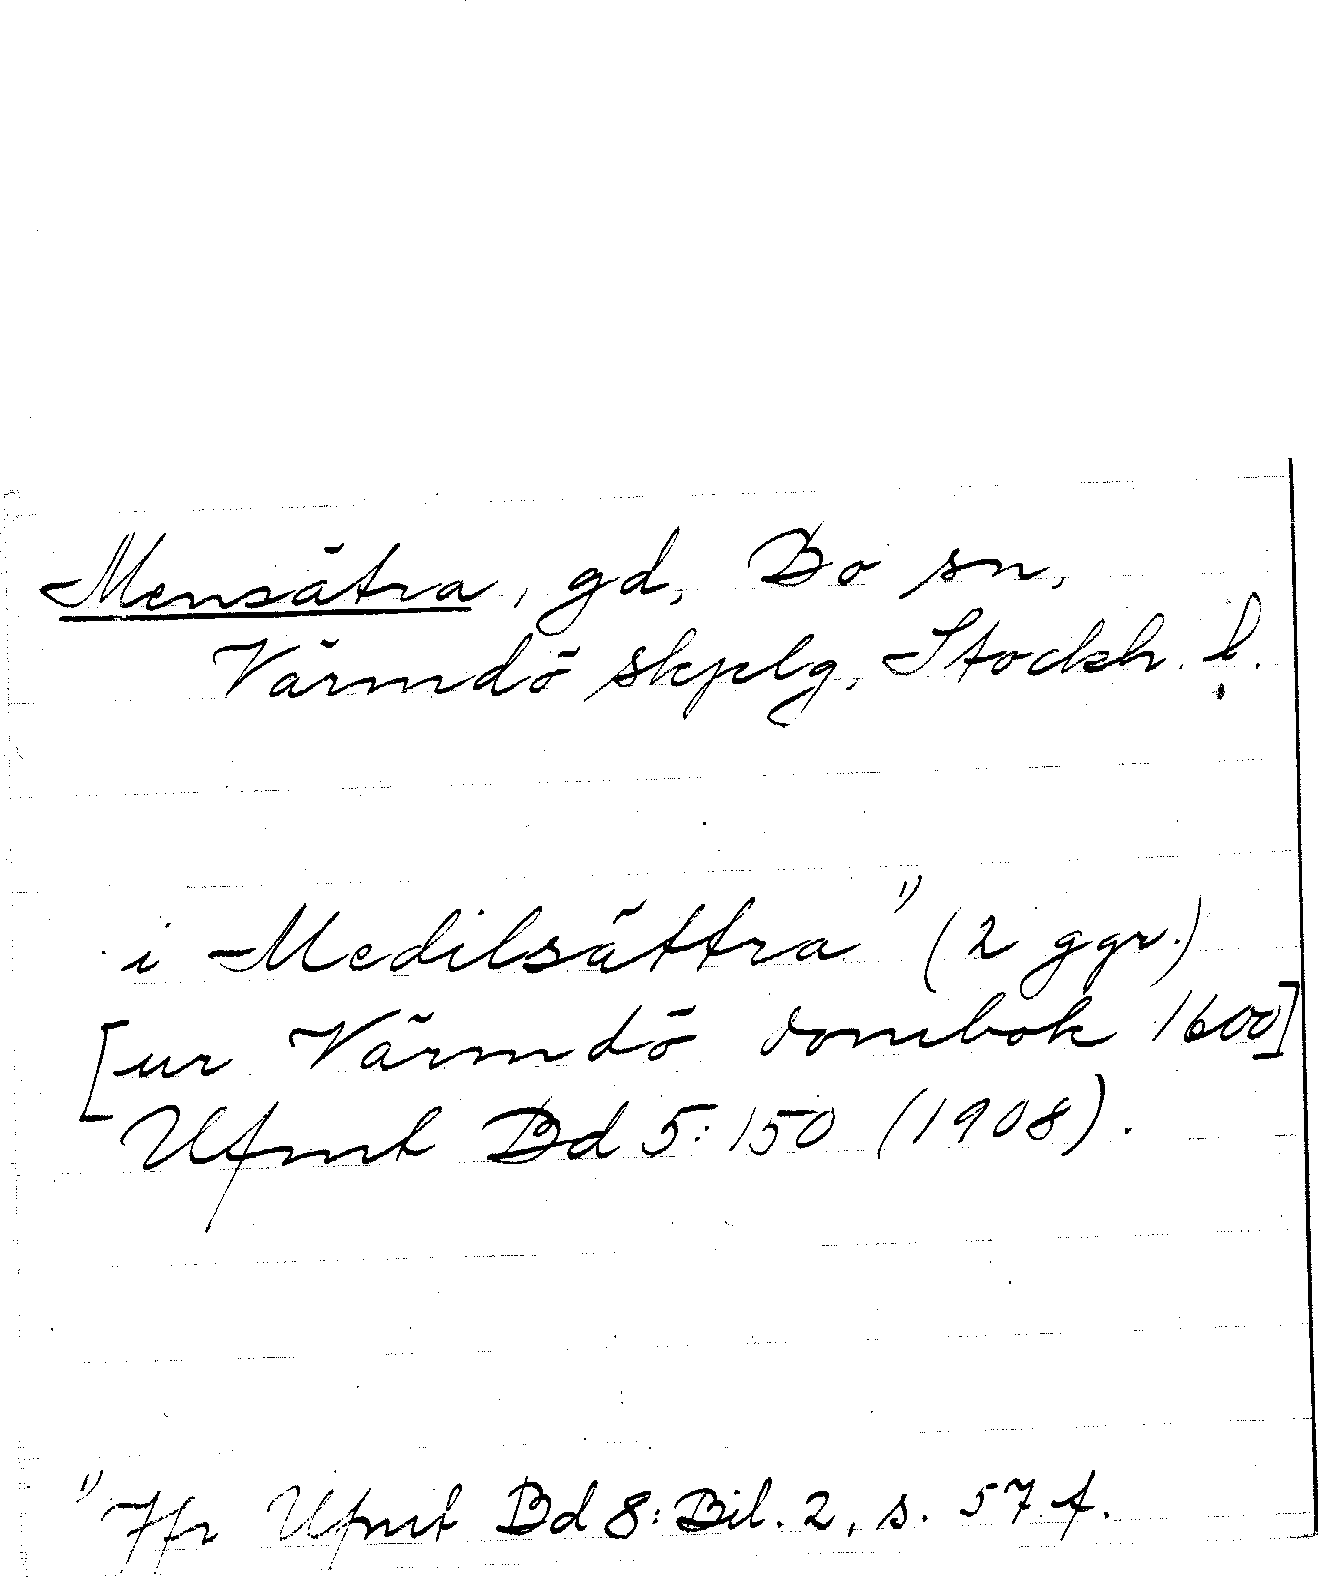 Mensätra, gd, Bo sn,
Värmdö skplg, Stockh. l.
i Medilsättra ¹⁾ (2 ggr.)
[ur Värmdö dombok 1600]
Ufmt Bd 5:150 (1908).
¹⁾ Jfr Ufmt Bd 8: Bil. 2, s. 57 f.